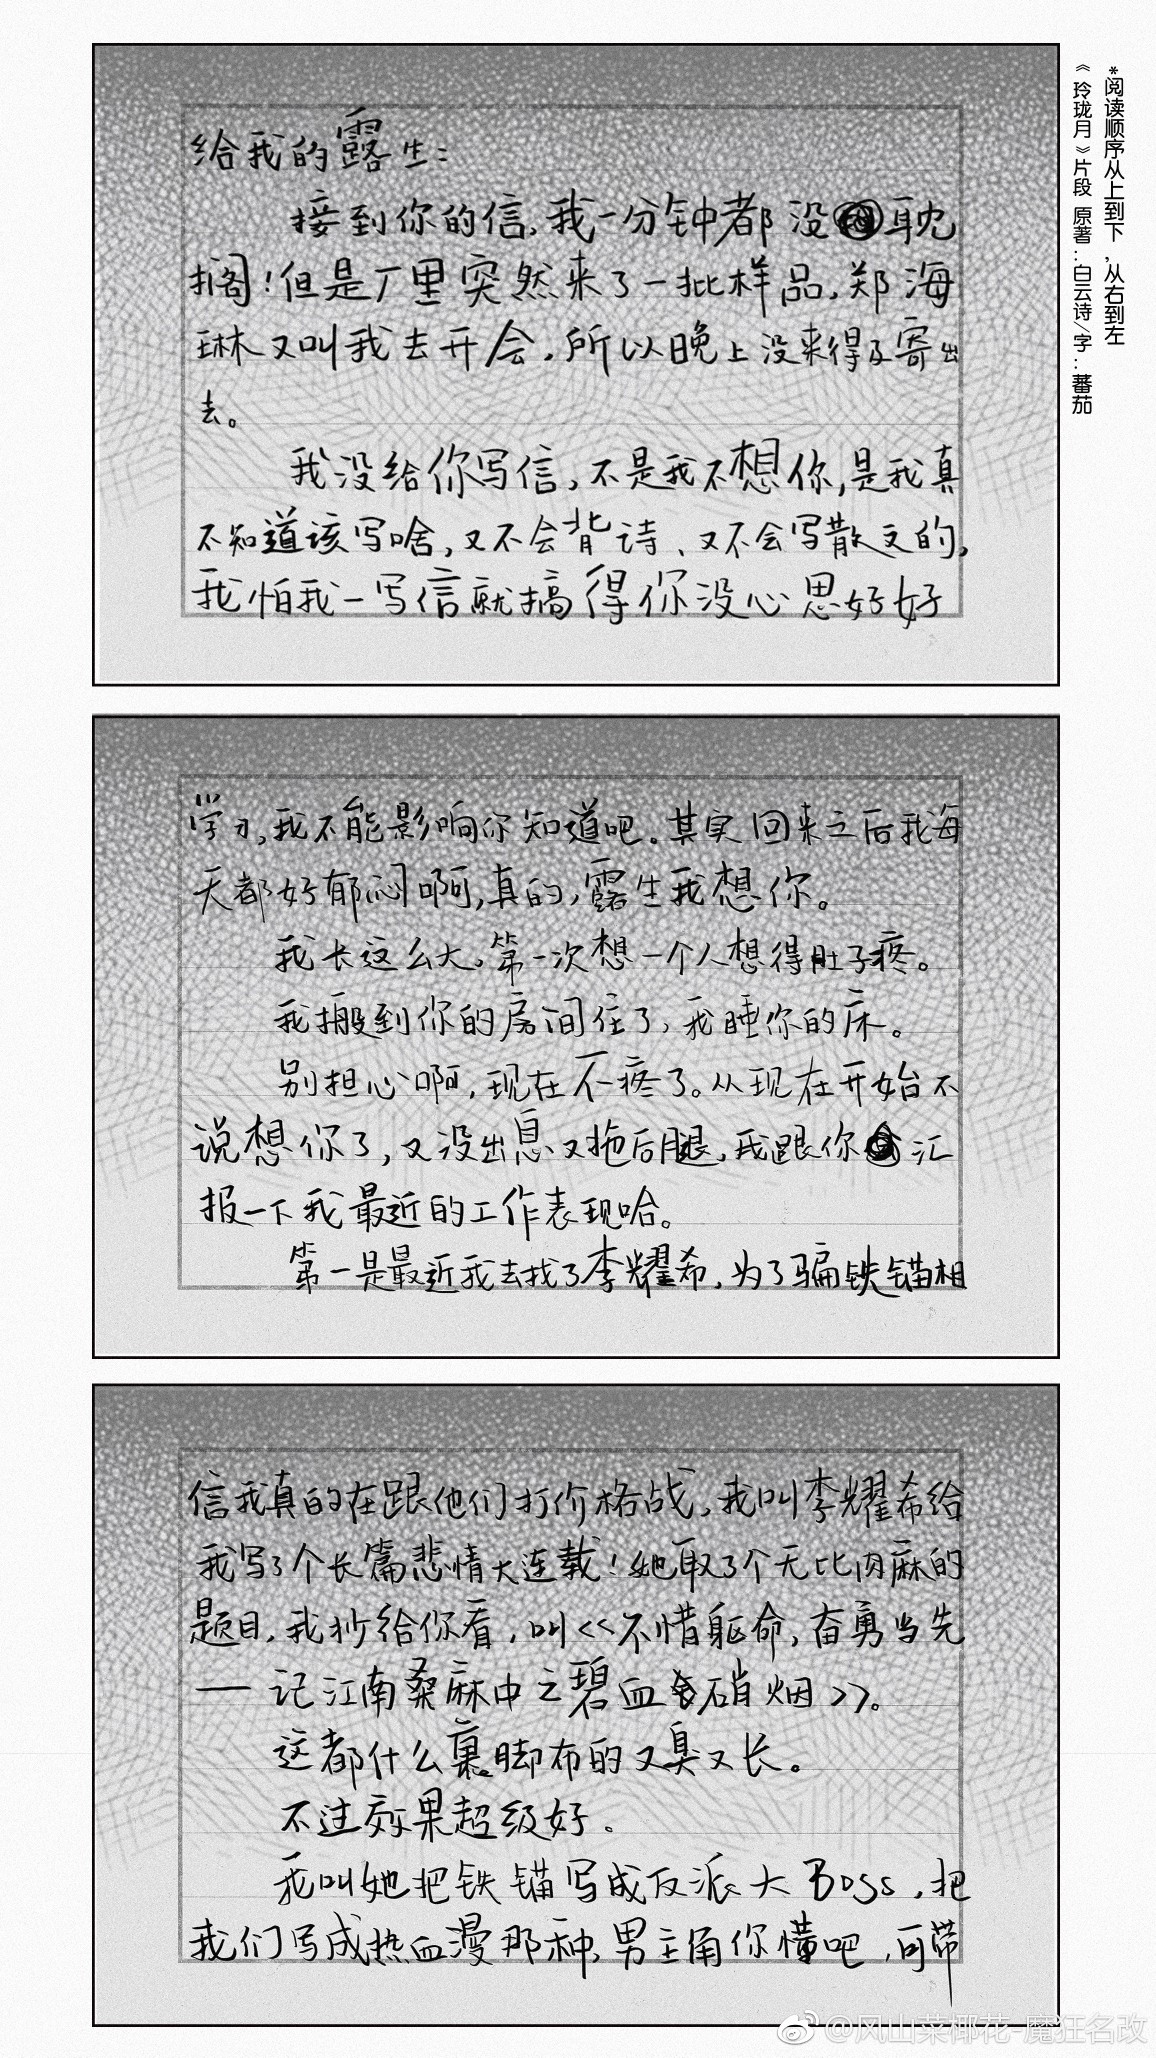 *阅读顺序从上到下,从右到左
《玲珑月》片段 原著:白云诗/字:蕃茄
给我的露生:
接到你的信,我一分钟都没耽
搁!但是厂里突然来了一批样品,郑海
琳又叫我去开会,所以晚上没来得及寄出
去。
我没给你写信,不是我不想你,是我真
不知道该写啥,又不会背诗、又不会写散文的,
我怕我一写信就搞得你没心思好好
学习,我不能影响你知道吧。其实回来之后我每
天都好郁闷啊,真的,露生我想你。
我长这么大,第一次想一个人想得肚子疼。
我搬到你的房间住了,我睡你的床。
别担心啊,现在不疼了。从现在开始不
说想你了,又没出息又拖后腿,我跟你汇
报一下我最近的工作表现哈。
第一是最近我去找了李耀希,为了骗铁锚相
信我真的在跟他们打价格战,我叫李耀希给
我写了个长篇悲情大连载!她取了个无比肉麻的
题目,我抄给你看,叫<<不惜躯命,奋勇当先
——记江南桑麻中之碧血硝烟>>。
这都什么裹脚布的又臭又长。
不过效果超级好。
我叫她把铁锚写成反派大Boss,把
我们写成热血漫那种,男主角你懂吧,可带
@风山菜椰花-魔狂名改